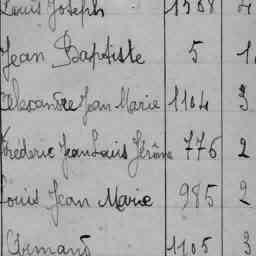 Louis Joseph 1368
Jean Baptiste 5 1
Alexandre Jean Marie 1104 3
Frédéric Jean Louis Jérôme 776 2
Louis Jean Marie 985 2
Armand 1105 3